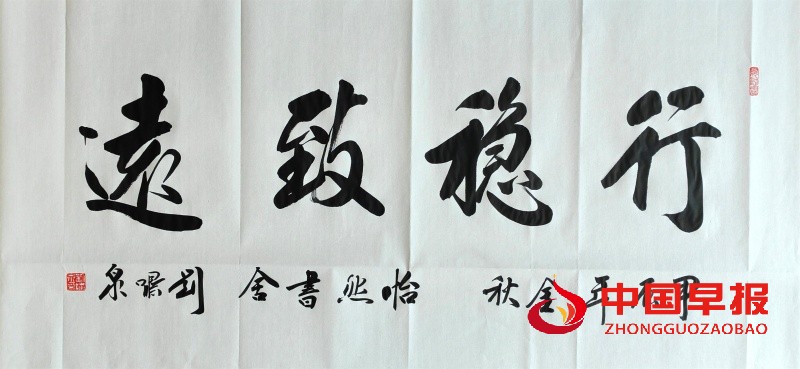 行稳致遠
年金秋 怡然書舍 刘 泉
中国早报
ZHONGGUOZAOBAO